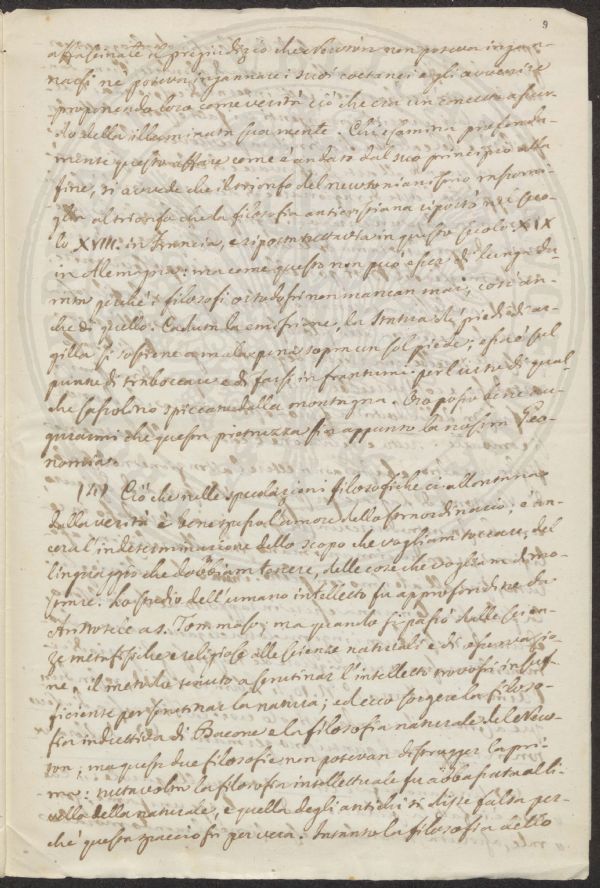 9
affascinate il pregiudizio che Newton non poteva ingan-
narsi nè poteva ingannare i suoi coetanei e gli avvenire
proponendo loro come verità ciò che era un errore assur-
do della illuminata sua mente. Chi esamina profonda-
mente questo affare come è andato dal suo principio alla
fine, si avvede che il trionfo del newtonianismo rassomi-
glia al trionfo che la filosofia anticristiana riportò nel seco-
lo XVIII. in Francia, e riporta tuttavia in questo secolo XIX
in Alemagna: ma come questo non può esser di lunga du-
rata perchè i filosofi ortodossi non mancan mai, così an-
che di quello. Caduta la emissione, la statua di piedi di ar-
gilla si sostiene a mala pena sopra un sol piede; ess'è sul
punto di traboccare e di farsi in frantumi per l'urto di qual
che sassolino spiccato dalla montagna. Ora posso bene au-
gurarmi che questa pietruzza sia appunto la nostra Geo-
nomia.
Ciò che nelle speculazioni filosofiche ci allontana
dalla verità è bene spesso l'amore dello straordinario, è an-
cora l'indeterminazione dello scopo che vogliam toccare, del
linguaggio che dobbiam tenere, delle cose che vogliam dimo-
strare. Lo studio dell'umano intelletto fu approfondito da
Aristotele a S. Tommaso; ma quando si passò dalle scien-
ze metafisiche e religiose alle scienze naturali e di osservazio-
ne, il metodo tenuto a scrutinar l'intelletto trovossi insuf-
ficiente per scrutinar la natura; ed ecco sorgere la filoso-
fia induttiva di Bacone e la filosofia naturale del New-
ton; ma queste due filosofie non potevan distrugger la pri-
ma: tuttavolta la filosofia intellettuale fu abbassata al li-
vello della naturale, e quella degli antichi si disse falsa per-
chè questa spacciossi per vera. Intanto la filosofia dello